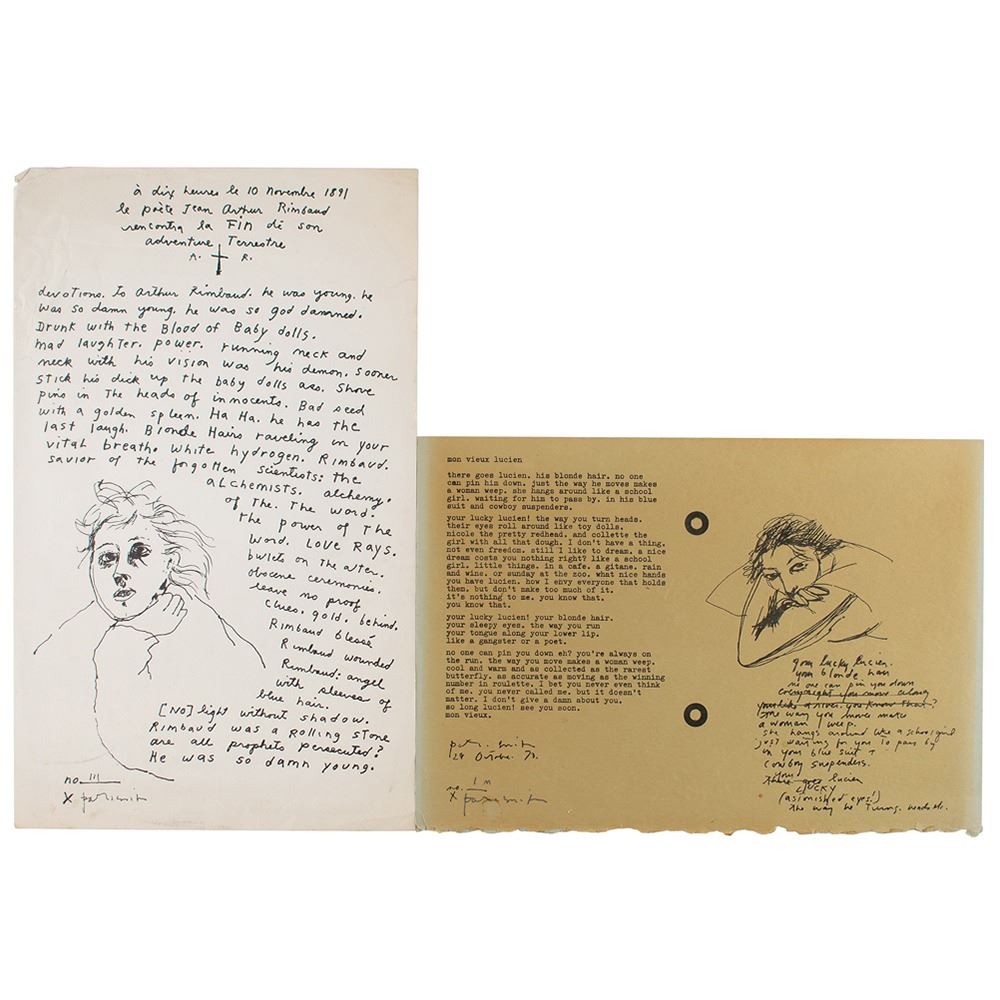 à dix heures le 10 Novembre 1891
le poète Jean Arthur Rimbaud
rencontra la FIN de son
adventure Terrestre
A. R.
devotions. To Arthur Rimbaud. he was young. he
was so damn young. he was so god damned.
Drunk with the Blood of Baby dolls.
mad laughter. power. running neck and
neck with his vision was his demon. sooner
stick his dick up the baby dolls ass. Shove
pins in The heads of innocents. Bad seed
with a golden spleen. Ha Ha. he has the
last laugh. Blonde Hairs raveling in your
vital breath. white hydrogen. Rimbaud.
savior of the forgotten scientists: the
aLchemists. alchemy.
of the. The word.
the power of The
word. LOVE RAYS.
bullets on the alter.
obscene ceremonies.
leave no proof
clues. gold. behind.
Rimbaud blessé
Rimbaud wounded
Rimbaud: angel
with sleeves of
blue hair.
[NO] light without shadow.
Rimbaud was a Rolling Stone
are all prophets persecuted?
He was so damn young.
no. III
X patti smith
mon vieux lucien
there goes lucien. his blonde hair. no one
can pin him down. just the way he moves makes
a woman weep. she hangs around like a school
girl. waiting for him to pass by. in his blue
suit and cowboy suspenders.
your lucky lucien! the way you turn heads.
their eyes roll around like toy dolls.
nicole the pretty redhead. and collette the
girl with all that dough. I don't have a thing.
not even freedom. still I like to dream. a nice
dream costs you nothing right? like a school
girl. little things. in a cafe. a gitane. rain
and wine. or sunday at the zoo. what nice hands
you have lucien. how I envy everyone that holds
them. but don't make too much of it.
it's nothing to me. you know that.
you know that.
your lucky lucien! your blonde hair.
your sleepy eyes. the way you run
your tongue along your lower lip.
like a gangster or a poet.
no one can pin you down eh? you're always on
the run. the way you move makes a woman weep.
cool and warm and as collected as the rarest
butterfly. as accurate as moving as the winning
number in roulette. I bet you never even think
of me. you never called me. but it doesn't
matter. I don't give a damn about you.
so long lucien! see you soon.
mon vieux.
patti smith
28 Octobre. 70.
no. 1 M
X patti smith
your lucky lucien.
your blonde hair
no one can pin you down
you know that?
the way you move makes
a woman weep.
she hangs around like a schoolgirl
just waiting for you to pass by
in your blue suit +
cowboy suspenders.
there goes lucien
LUCKY
(astonished eyes!)
the way he Turns heads etc.